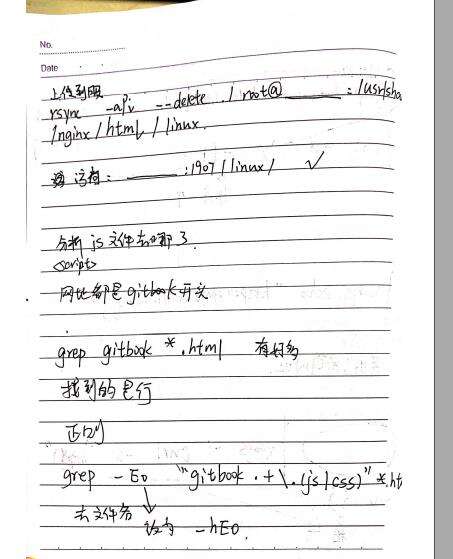 No.
Date
上传到服
rsync -apv --delete ./ root@______:/usr/sha
/nginx/html/linux
访问:______:1907/linux/ ✓
分析js文件去哪了.
<script>
网址都是gitbook开头
grep gitbook *.html 有好多
找到的是行
正则
grep -Eo "gitbook.+\.(js|css)" *.ht
去文件名
改为 -hEo.